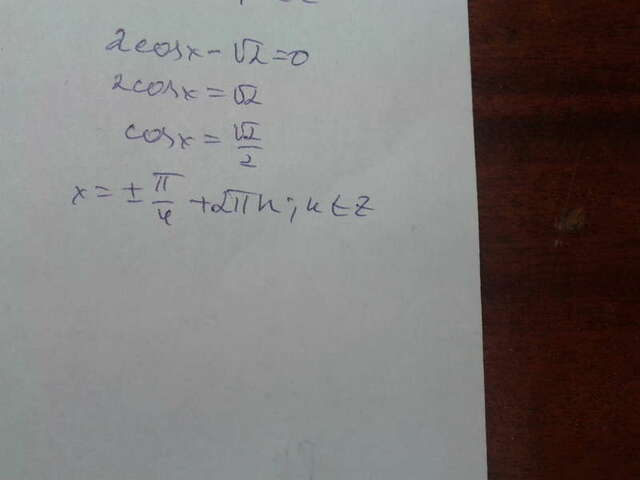 2cosx - √2 = 0
2cosx = √2
cosx = √2/2
x = ± π/4 + 2πn; n ∈ Z